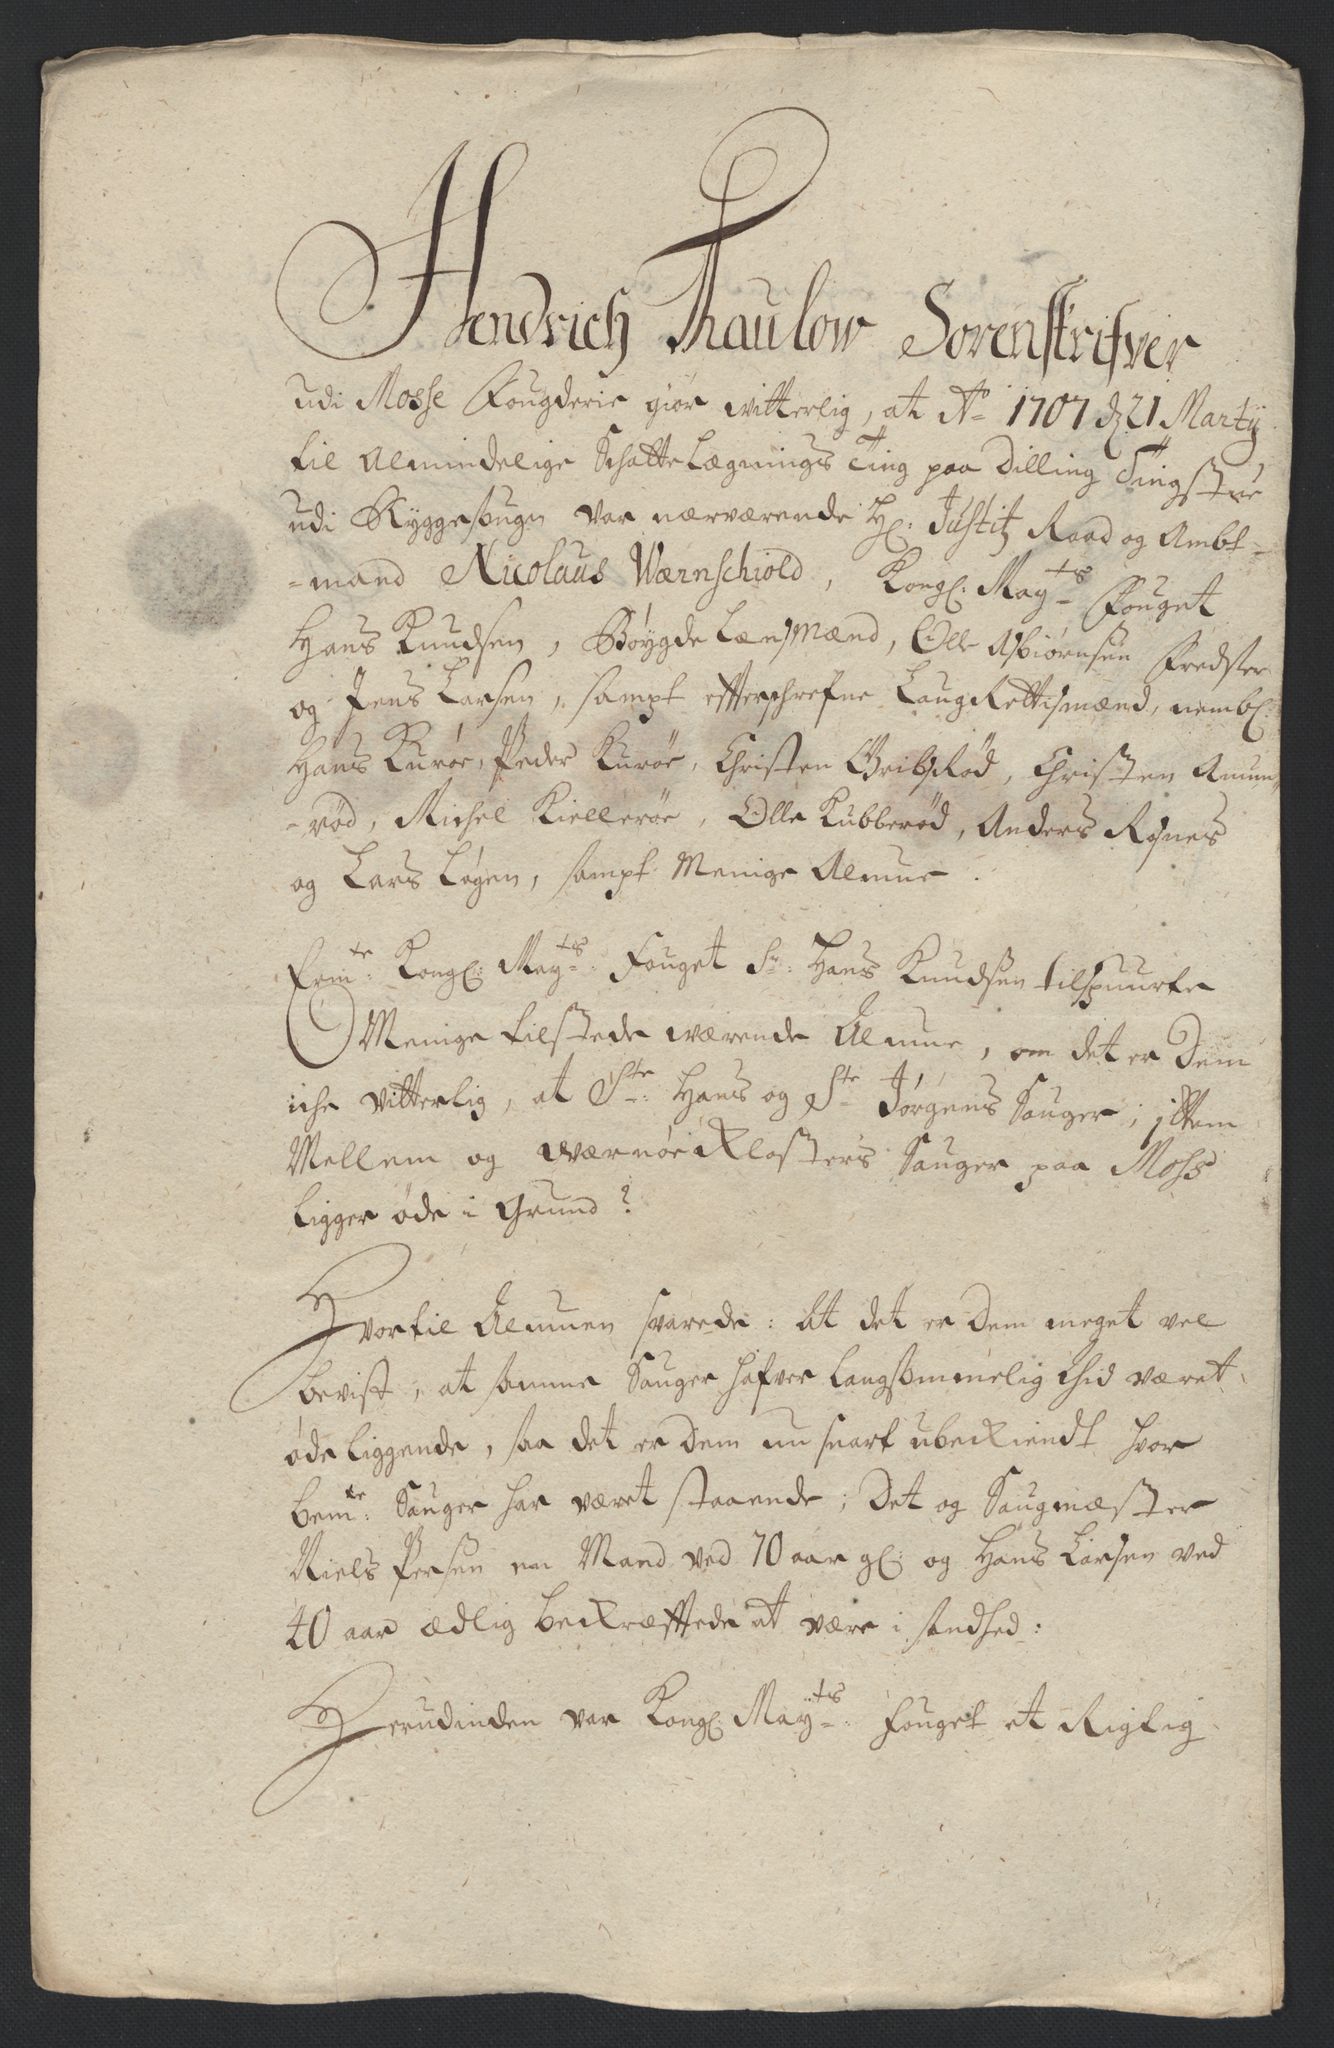 Hendrich Thaulow Sorenskrifver
udi Mosse Fougderie giør witterlig, at Ao 1707 d 21 Martij
til Almindelige Schatte Lægnings Ting paa Dilling Tingstue
udi Ryggesougn var nærværende Hr: Justitz Raad og Ambt-
-mand Nicolaus Wærnschiold, Kongl: Mayts Fouget
Hans Knudsen, Bøygde Lænsmænd, Olle Asbiørnsen Fredster
og Jens Larsen, sampt effterschrefne LaugRettismænd, nembl:
Hans Kurøe, Peder Kurøe, Christen Gribsrød, Christen Amun-
-rød, Michel Kiellerøe, Olle Kubberød, Anders Rosnes
og Lars Løgen, sampt Menige Almue.
Ermte: Kongl: Mayts: Fouget Sr: Hans Knudsen tilspuurte
Menige tilstede værende Almue, om det er Dem
iche vitterlig, at Ste: Hans og Ste Jørgens Sauger, jttem
Mellem og WærnøeKlosters Sauger paa Moss
ligger øde i Grund?
Hvortil Almuen svarede: At det er Dem meget vel
bevist, at samme Sauger hafver langsommelig Thid været
øde liggende, saa det er Dem nu snart ubekiendt hvor
bemte: Sauger har været staaende; Det og Saugmæster
Niels Persen en Mand ved 70 aar gl: og Hans Larsen ved
40 aar ædlig bekræfftede at være i sandhed:
Herudinden var Kongl: Mayts: Fouget et Rigtig